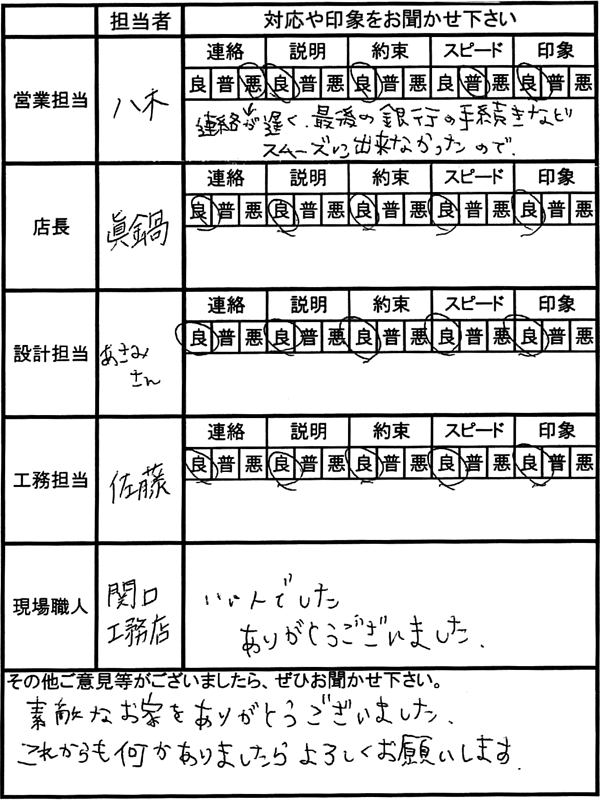 担当者 対応や印象をお聞かせ下さい
営業担当 八木
連絡 説明 約束 スピード 印象
良 普 悪 良 普 悪 良 普 悪 良 普 悪 良 普 悪
連絡が遅く、最後の銀行の手続きなど
スムーズに出来なかったので、
店長 眞鍋
連絡 説明 約束 スピード 印象
良 普 悪 良 普 悪 良 普 悪 良 普 悪 良 普 悪
設計担当 あさみ
さん
連絡 説明 約束 スピード 印象
良 普 悪 良 普 悪 良 普 悪 良 普 悪 良 普 悪
工務担当 佐藤
連絡 説明 約束 スピード 印象
良 普 悪 良 普 悪 良 普 悪 良 普 悪 良 普 悪
現場職人 関口
工務店
いい人でした
ありがとうございました。
その他ご意見等がございましたら、ぜひお聞かせ下さい。
素敵なお家をありがとうございました。
これからも何かありましたらよろしくお願いします。